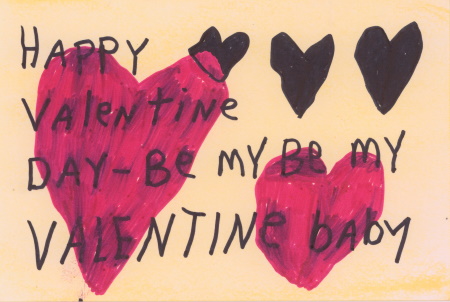 HAPPY
Valentine
DAY-Be my Be my
VALENTINe baby